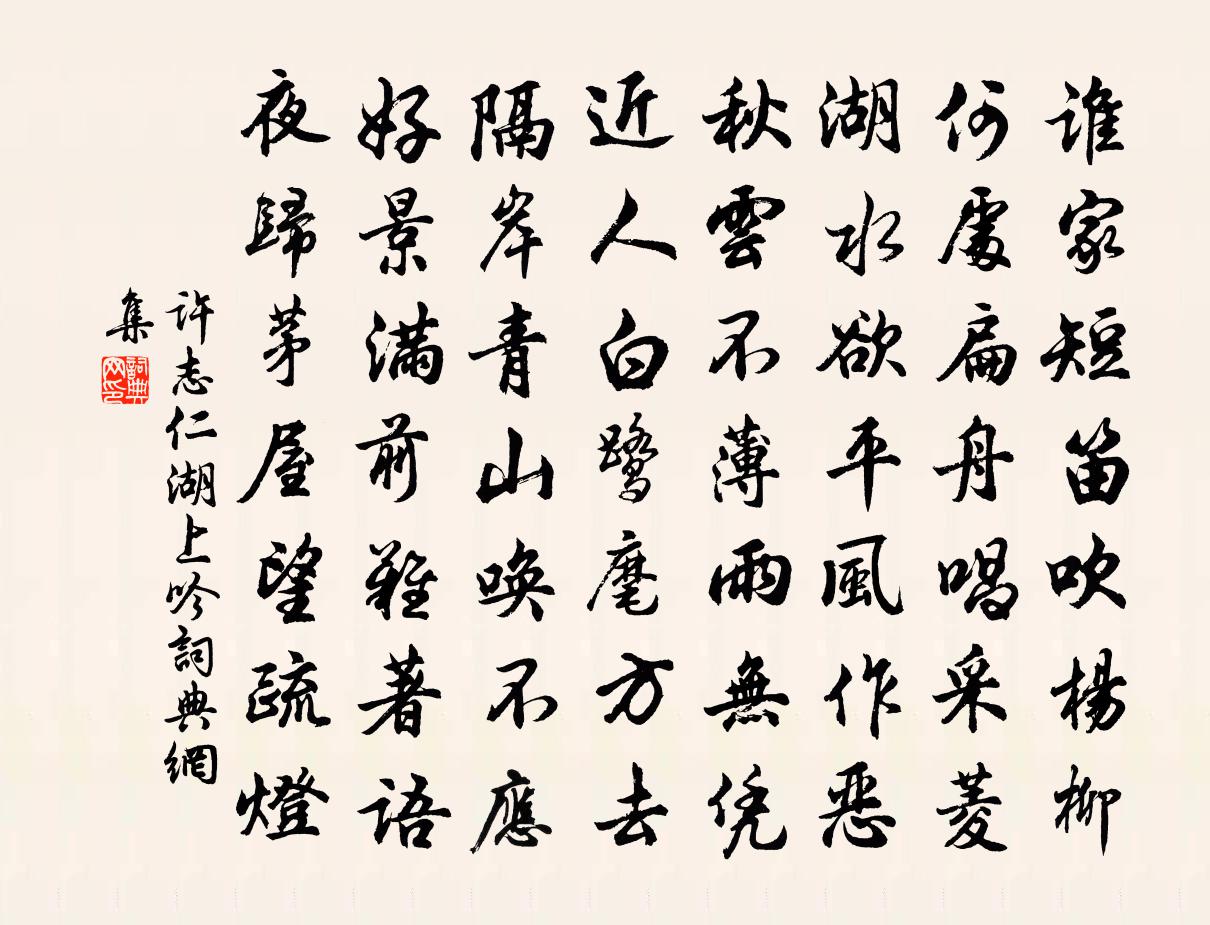 誰家短笛吹楊柳
何處扁舟唱采菱
湖水欲平風作惡
秋雲不薄雨無凭
近人白鷺麾方去
隔岸青山喚不應
好景滿前難著語
夜歸茅屋望疏燈
許志仁湖上吟詞典網
集
詞典
网印